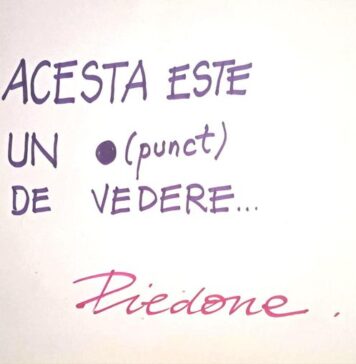 ACESTA ESTE
UN ● (punct)
DE VEDERE...
Piedone.